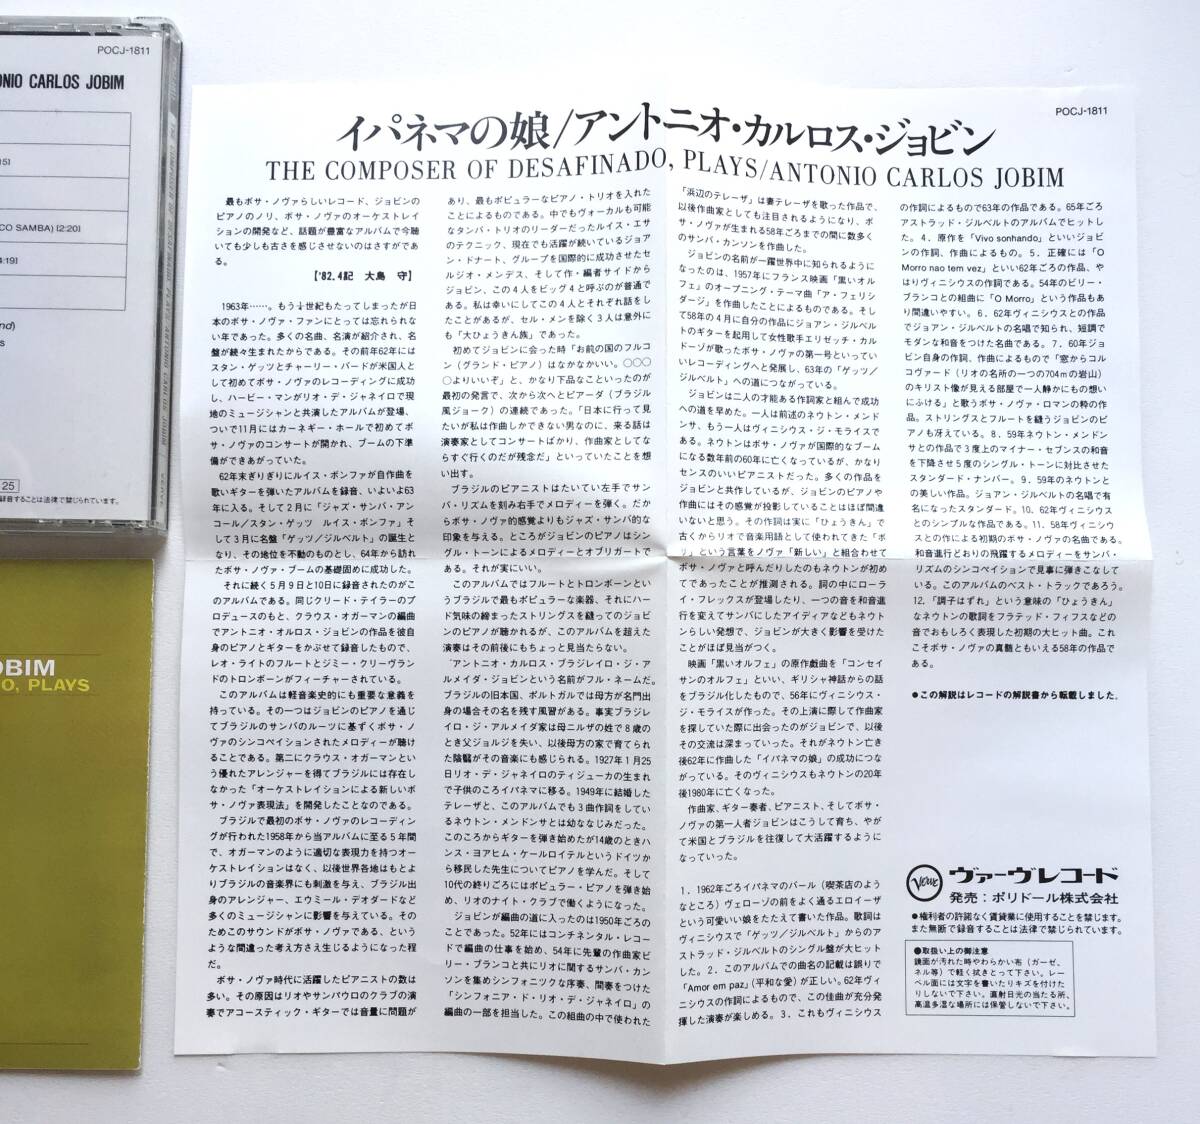 POCJ-1811
ONIO CARLOS JOBIM
15]
CO SAMBA) [2:20]
4:19]
nd)
s
25
録音することは法律で禁じられています。
OBIM
O, PLAYS
POCJ-1811
イパネマの娘/アントニオ・カルロス・ジョビン
THE COMPOSER OF DESAFINADO, PLAYS/ANTONIO CARLOS JOBIM
最もボサ・ノヴァらしいレコード、ジョビンの
ピアノのノリ、ボサ・ノヴァのオーケストレイ
ションの開発など、話題が豊富なアルバムで今聴
いても少しも古さを感じさせないのはさすがであ
る。
['82.4記 大島 守]
1963年……。もう¼世紀もたってしまったが日
本のボサ・ノヴァ・ファンにとっては忘れられな
い年であった。多くの名曲、名演が紹介され、名
盤が続々生まれたからである。その前年62年には
スタン・ゲッツとチャーリー・バードが米国人と
して初めてボサ・ノヴァのレコーディングに成功
し、ハービー・マンがリオ・デ・ジャネイロで現
地のミュージシャンと共演したアルバムが登場、
ついで11月にはカーネギー・ホールで初めてボ
サ・ノヴァのコンサートが開かれ、ブームの下準
備ができあがっていた。
62年末ぎりぎりにルイス・ボンファが自作曲を
歌いギターを弾いたアルバムを録音、いよいよ63
年に入る。そして2月に「ジャズ・サンバ・アン
コール/スタン・ゲッツ ルイス・ボンファ」そ
して3月に名盤「ゲッツ/ジルベルト」の誕生と
なり、その地位を不動のものとし、64年から訪れ
たボサ・ノヴァ・ブームの基礎固めに成功した。
それに続く5月9日と10日に録音されたのがこ
のアルバムである。同じクリード・テイラーのプ
ロデュースのもと、クラウス・オガーマンの編曲
でアントニオ・オルロス・ジョビンの作品を彼自
身のピアノとギターをかぶせて録音したもので、
レオ・ライトのフルートとジミー・クリーヴラン
ドのトロンボーンがフィーチャーされている。
このアルバムは軽音楽史的にも重要な意義を
持っている。その一つはジョビンのピアノを通じ
てブラジルのサンバのルーツに基ずくボサ・ノ
ヴァのシンコペイションされたメロディーが聴け
ることである。第二にクラウス・オガーマンとい
う優れたアレンジャーを得てブラジルには存在し
なかった「オーケストレイションによる新しいボ
サ・ノヴァ表現法」を開発したことなのである。
ブラジルで最初のボサ・ノヴァのレコーディン
グが行われた1958年から当アルバムに至る5年間
で、オガーマンのように適切な表現力を持つオー
ケストレイションはなく、以後世界各地はもとよ
りブラジルの音楽界にも刺激を与え、ブラジル出
身のアレンジャー、エウミール・デオダードなど
多くのミュージシャンに影響を与えている。その
ためこのサウンドがボサ・ノヴァである、という
ような間違った考え方さえ生じるようになった程
だ。
ボサ・ノヴァ時代に活躍したピアニストの数は
多い。その原因はリオやサンパウロのクラブの演
奏でアコースティック・ギターでは音量に問題が
あり、最もポピュラーなピアノ・トリオを入れた
ことによるものである。中でもヴォーカルも可能
なタンバ・トリオのリーダーだったルイス・エサ
のテクニック、現在でも活躍が続いているジョア
ン・ドナート、グループを国際的に成功させたセ
ルジオ・メンデス、そして作・編者サイドから
ジョビン、この4人をビッグ4と呼ぶのが普通で
ある。私は幸いにしてこの4人とそれぞれ話をし
たことがあるが、セル・メンを除く3人は意外に
も「大ひょうきん族」であった。
初めてジョビンに会った時「お前の国のフルコ
ン(グランド・ピアノ)はなかなかいい。○○○
○よりいいぞ」と、かなり下品なこといったのが
最初の発言で、次から次へとピアーダ(ブラジル
風ジョーク)の連続であった。「日本に行って見
たいが私は作曲しかできない男なのに、来る話は
演奏家としてコンサートばかり、作曲家としてな
らすぐ行くのだが残念だ」といっていたことを想
い出す。
ブラジルのピアニストはたいてい左手でサン
バ・リズムを刻み右手でメロディーを弾く。だか
らボサ・ノヴァ的感覚よりもジャズ・サンバ的な
印象を与える。ところがジョビンのピアノはシン
グル・トーンによるメロディーとオブリガートで
ある。それが実にいい。
このアルバムではフルートとトロンボーンとい
うブラジルで最もポピュラーな楽器、それにハー
ド気味の締まったストリングスを縫ってのジョビ
ンのピアノが聴かれるが、このアルバムを超えた
演奏はその前後にもちょっと見当たらない。
'アントニオ・カルロス・ブラジレイロ・ジ・ア
ルメイダ・ジョビンという名前がフル・ネームだ。
ブラジルの旧本国、ポルトガルでは母方が名門出
身の場合その名を残す風習がある。事実ブラジレ
イロ・ジ・アルメイダ家は母ニルザの姓で8歳の
とき父ジョルジを失い、以後母方の家で育てられ
た陰翳がその音楽にも感じられる。1927年1月25
日リオ・デ・ジャネイロのティジューカの生まれ
で子供のころイパネマに移る。1949年に結婚した
テレーザと、このアルバムでも3曲作詞をしてい
るネウトン・メンドンサとは幼ななじみだった。
このころからギターを弾き始めたが14歳のときハ
ンス・ヨアヒム・ケールロイテルというドイツか
ら移民した先生についてピアノを学んだ。そして
10代の終りごろにはポピュラー・ピアノを弾き始
め、リオのナイト・クラブで働くようになった。
ジョビンが編曲の道に入ったのは1950年ごろの
ことであった。52年にはコンチネンタル・レコー
ドで編曲の仕事を始め、54年に先輩の作曲家ビ
リー・ブランコと共にリオに関するサンバ・カン
ソンを集めシンフォニックな序奏、間奏をつけた
「シンフォニア・ド・リオ・デ・ジャネイロ」の
編曲の一部を担当した。この組曲の中で使われた
「浜辺のテレーザ」は妻テレーザを歌った作品で、
以後作曲家としても注目されるようになり、ボ
サ・ノヴァが生まれる58年ごろまでの間に数多く
のサンバ・カンソンを作曲した。
ジョビンの名前が一躍世界中に知られるように
なったのは、1957年にフランス映画「黒いオル
フェ」のオープニング・テーマ曲「ア・フェリシ
ダージ」を作曲したことによるものである。そし
て58年の4月に自分の作品にジョアン・ジルベル
トのギターを起用して女性歌手エリゼッチ・カル
ドーゾが歌ったボサ・ノヴァの第一号といってい
いレコーディングへと発展し、63年の「ゲッツ/
ジルベルト」への道につながっている。
ジョビンは二人の才能ある作詞家と組んで成功
への道を早めた。一人は前述のネウトン・メンド
ンサ、もう一人はヴィニシウス・ジ・モライスで
ある。ネウトンはボサ・ノヴァが国際的なブーム
になる数年前の60年に亡くなっているが、かなり
センスのいいピアニストだった。多くの作品を
ジョビンと共作しているが、ジョビンのピアノや
作曲にはその感覚が投影していることはほぼ間違
いないと思う。その作詞は実に「ひょうきん」で
古くからリオで音楽用語として使われてきた「ボ
サ」という言葉をノヴァ「新しい」と組合わせて
ボサ・ノヴァと呼んだりしたのもネウトンが初め
てであったことが推測される。詞の中にローラ
イ・フレックスが登場したり、一つの音を和音進
行を変えてサンバにしたアイディアなどもネウト
ンらしい発想で、ジョビンが大きく影響を受けた
ことがほぼ見当がつく。
映画「黒いオルフェ」の原作戯曲を「コンセイ
サンのオルフェ」といい、ギリシャ神話からの話
をブラジル化したもので、56年にヴィニシウス・
ジ・モライスが作った。その上演に際して作曲家
を探していた際に出会ったのがジョビンで、以後
その交流は深まっていった。それがネウトン亡き
後62年に作曲した「イパネマの娘」の成功につな
がっている。そのヴィニシウスもネウトンの20年
後1980年に亡くなった。
作曲家、ギター奏者、ピアニスト、そしてボサ・
ノヴァの第一人者ジョビンはこうして育ち、やが
て米国とブラジルを往復して大活躍するように
なっていった。
1.1962年ごろイパネマのバール(喫茶店のよう
なところ)ヴェローゾの前をよく通るエロイーザ
という可愛いい娘をたたえて書いた作品。歌詞は
ヴィニシウスで「ゲッツ/ジルベルト」からのア
ストラッド・ジルベルトのシングル盤が大ヒット
した。2.このアルバムでの曲名の記載は誤りで
「Amor em paz」(平和な愛)が正しい。62年ヴィ
ニシウスの作詞によるもので、この佳曲が充分発
揮した演奏が楽しめる。3.これもヴィニシウス
の作詞によるもので63年の作品である。65年ごろ
アストラッド・ジルベルトのアルバムでヒットし
た。4.原作を「Vivo sonhando」といいジョビ
ンの作詞、作曲によるもの。5.正確には「O
Morro nao tem vez」といい62年ごろの作品、や
はりヴィニシウスの作詞である。54年のビリー・
ブランコとの組曲に「O Morro」という作品もあ
り間違いやすい。6.62年ヴィニシウスとの作品
でジョアン・ジルベルトの名唱で知られ、短調で
モダンな和音をつけた名曲である。7.60年ジョ
ビン自身の作詞、作曲によるもので「窓からコル
コヴァード(リオの名所の一つの704mの岩山)
のキリスト像が見える部屋で一人静かにもの想い
にふける」と歌うボサ・ノヴァ・ロマンの粋の作
品。ストリングスとフルートを縫うジョビンのピ
アノも冴えている。8.59年ネウトン・メンドン
サとの作品で3度上のマイナー・セブンスの和音
を下降させ5度のシングル・トーンに対比させた
スタンダード・ナンバー。9.59年のネウトンと
の美しい作品。ジョアン・ジルベルトの名唱で有
名になったスタンダード。10.62年ヴィニシウス
とのシンプルな作品である。11.58年ヴィニシウ
スとの作による初期のボサ・ノヴァの名曲である。
和音進行どおりの飛躍するメロディーをサンバ・
リズムのシンコペイションで見事に弾きこなして
いる。このアルバムのベスト・トラックであろう。
12.「調子はずれ」という意味の「ひょうきん」
なネウトンの歌詞をフラテッド・フィフスなどの
音でおもしろく表現した初期の大ヒット曲。これ
こそボサ・ノヴァの真髄ともいえる58年の作品で
ある。
●この解説はレコードの解説書から転載しました.
Verve
ヴァーヴレコード
発売:ポリドール株式会社
●権利者の許諾なく賃貸業に使用することを禁じます。
また無断で録音することは法律で禁じられています。
●取扱い上の御注意
鏡面が汚れた時やわらかい布(ガーゼ、
ネル等)で軽く拭きとって下さい。レー
ベル面には文字を書いたりキズを付けた
りしないで下さい。直射日光の当たる所、
高温多湿な場所には保管しないで下さい。